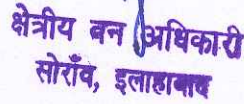 क्षेत्रीय वन अधिकारी
सोराँव, इलाहाबाद